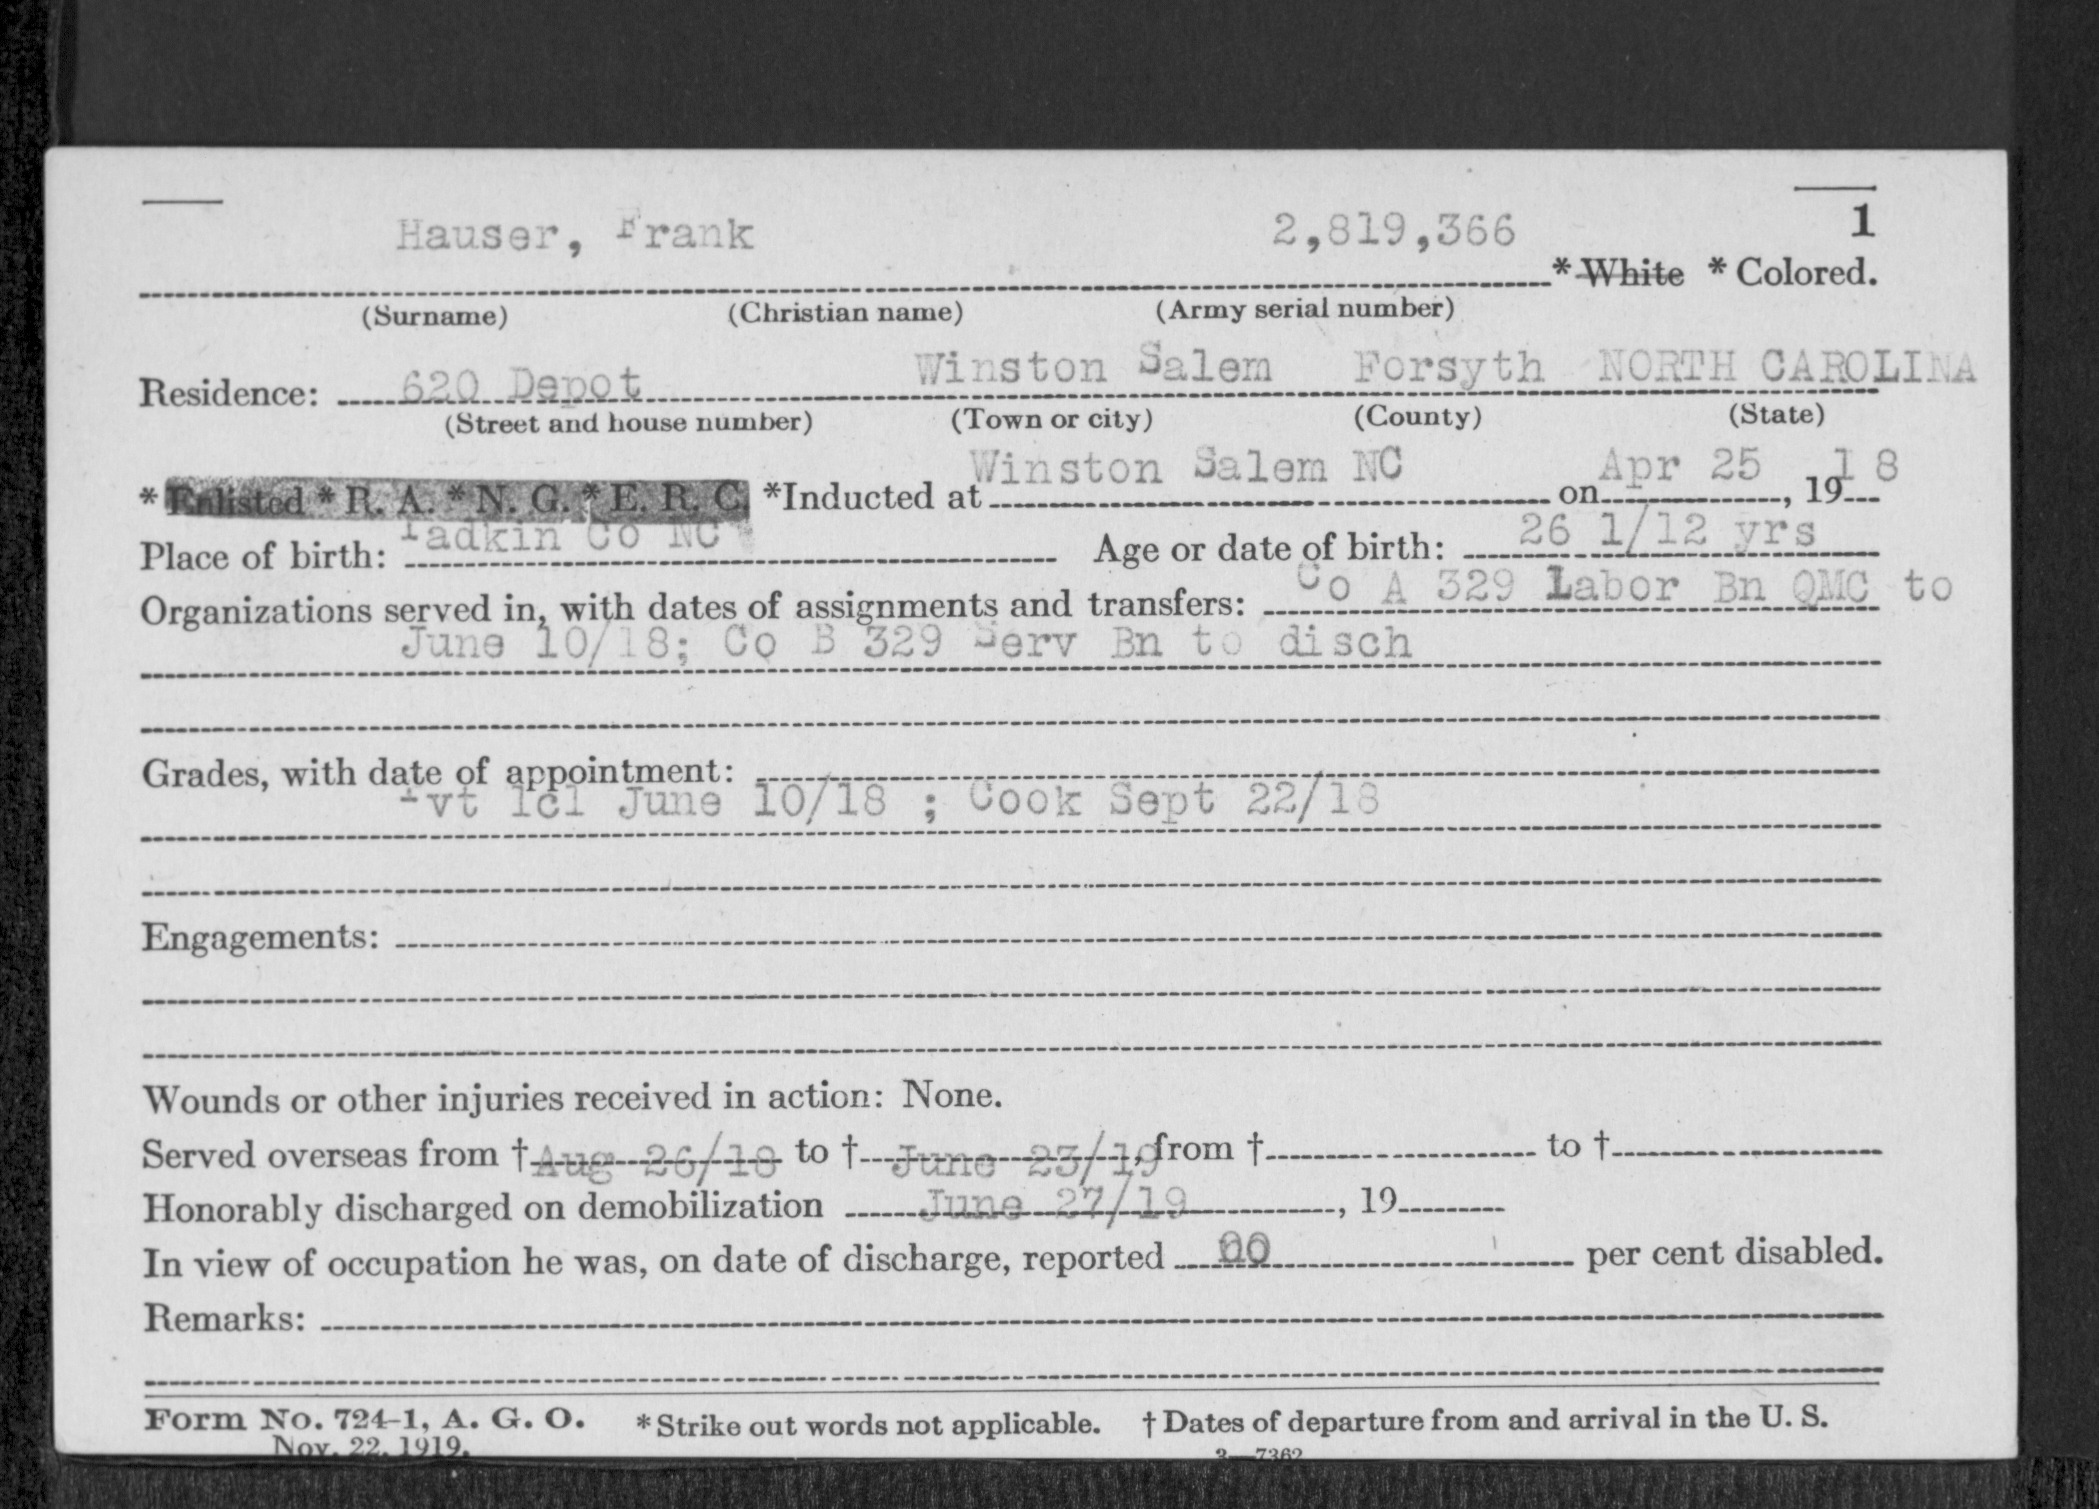 1
Hauser, Frank 2,819,366
* White * Colored.
(Surname) (Christian name) (Army serial number)
Residence: 620 Depot Winston Salem Forsyth NORTH CAROLINA
(Street and house number) (Town or city) (County) (State)
* Enlisted * R. A. * N. G. * E. R. C. *Inducted at Winston Salem NC on Apr 25, 1918
Place of birth: Yadkin Co NC Age or date of birth: 26 1/12 yrs
Organizations served in, with dates of assignments and transfers: Co A 329 Labor Bn QMC to
June 10/18; Co B 329 Serv Bn to disch
Grades, with date of appointment:
Pvt 1cl June 10/18 ; Cook Sept 22/18
Engagements:
Wounds or other injuries received in action: None.
Served overseas from † Aug 26/18 to † June 23/19, from † to †
Honorably discharged on demobilization June 27/19, 19
In view of occupation he was, on date of discharge, reported 00 per cent disabled.
Remarks:
Form No. 724-1, A. G. O. *Strike out words not applicable. † Dates of departure from and arrival in the U. S.
Nov. 22, 1919. 3—7362